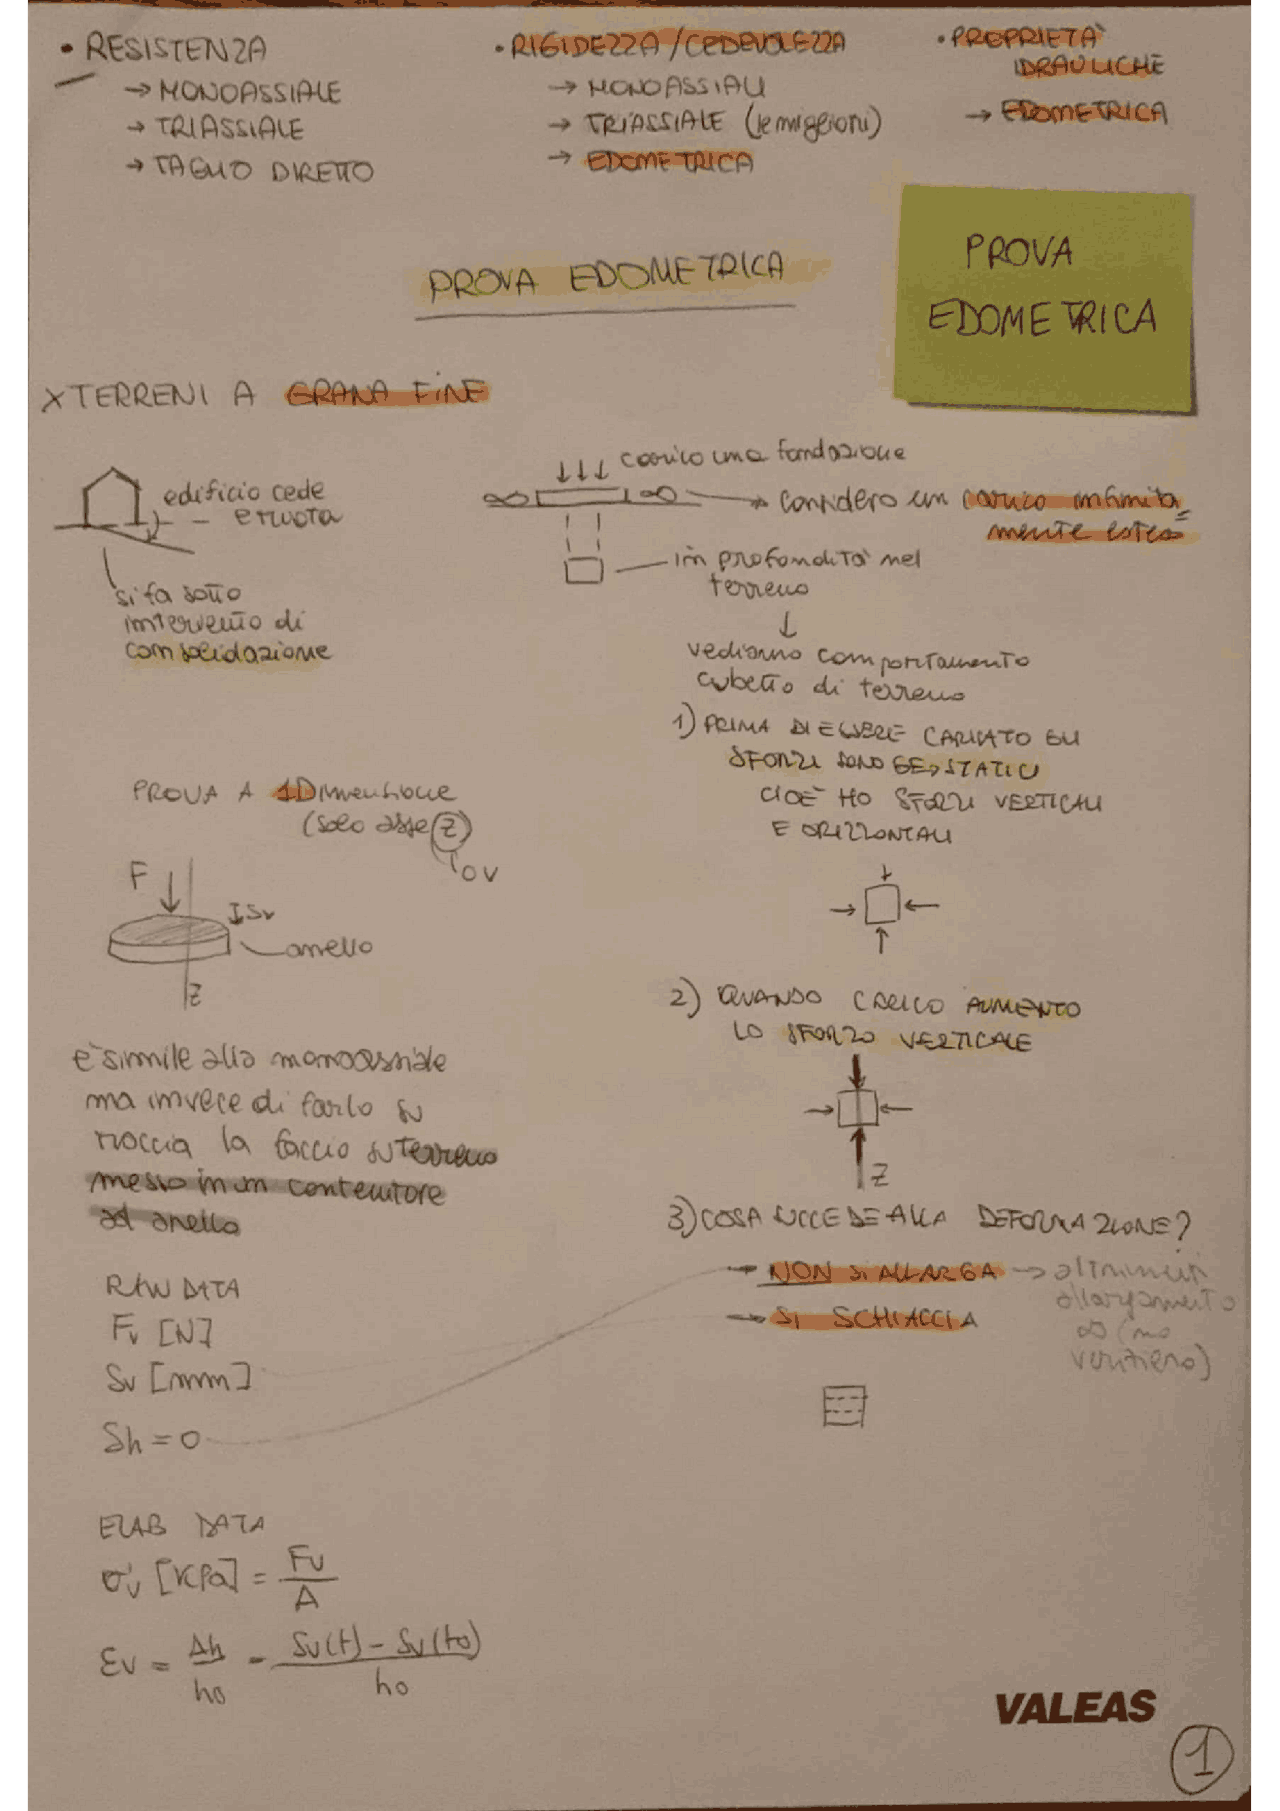 • RESISTENZA
→ MONOASSIALE
→ TRIASSIALE
→ TAGLIO DIRETTO
• RIGIDEZZA/CEDEVOLEZZA
→ MONOASSIALI
→ TRIASSIALE
→ EDOMETRICA
• PROPRIETÀ
IDRAULICHE
→ EDOMETRICA
PROVA EDOMETRICA
PROVA
EDOMETRICA
X TERRENI A GRANA FINE
edificio cede
e ruota
si fa sotto
intervento di
consolidazione
carico una fondazione
→ considero un carico infinita
mente esteso
in profondità nel
terreno
↓
vediamo comportamento
cubetto di terreno
1) PRIMA DI ESSERE CARICATO GLI
SFORZI SONO GEOSTATICI
CIOÈ HO SFORZI VERTICALI
E ORIZZONTALI
PROVA A 1Dimensione
(solo asse Z)
o v
F
Sv
anello
Z
2) QUANDO CARICO AUMENTO
LO SFORZO VERTICALE
Z
è simile alla monoassiale
ma invece di farlo su
roccia la faccio su terreno
messo in un contenitore
ad anello
3) COSA SUCCEDE ALLA DEFORMAZIONE?
→ NON SI ALLARGA → altrimenti
allargamento
∞ (no
veritiero)
→ SI SCHIACCIA
RAW DATA
Fv [N]
Sv [mm]
Sh = 0
ELAB DATA
σ'v [KPa] = Fv / A
εv = Δh / h0 = Sv(t) - Sv(t0) / h0
VALEAS
1